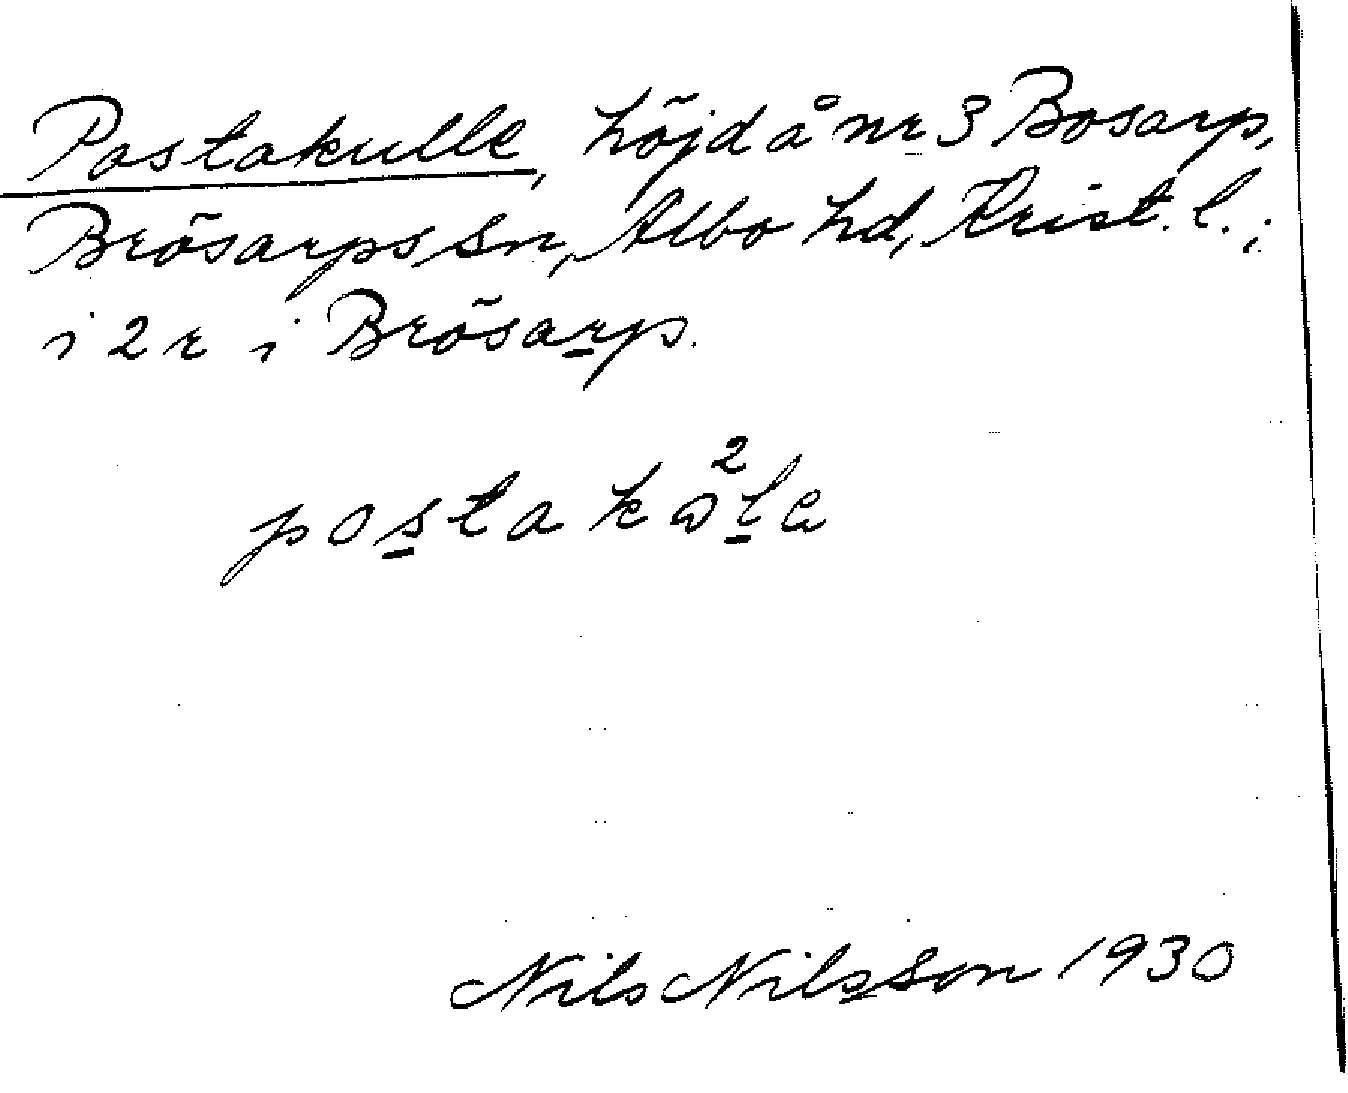 Postakulle, höjd å nr 3 Bosarp,
Brösarps sn, Albo hd, Krist. l.;
i 2 r i Brösarp.
Nils Nilsson 1930